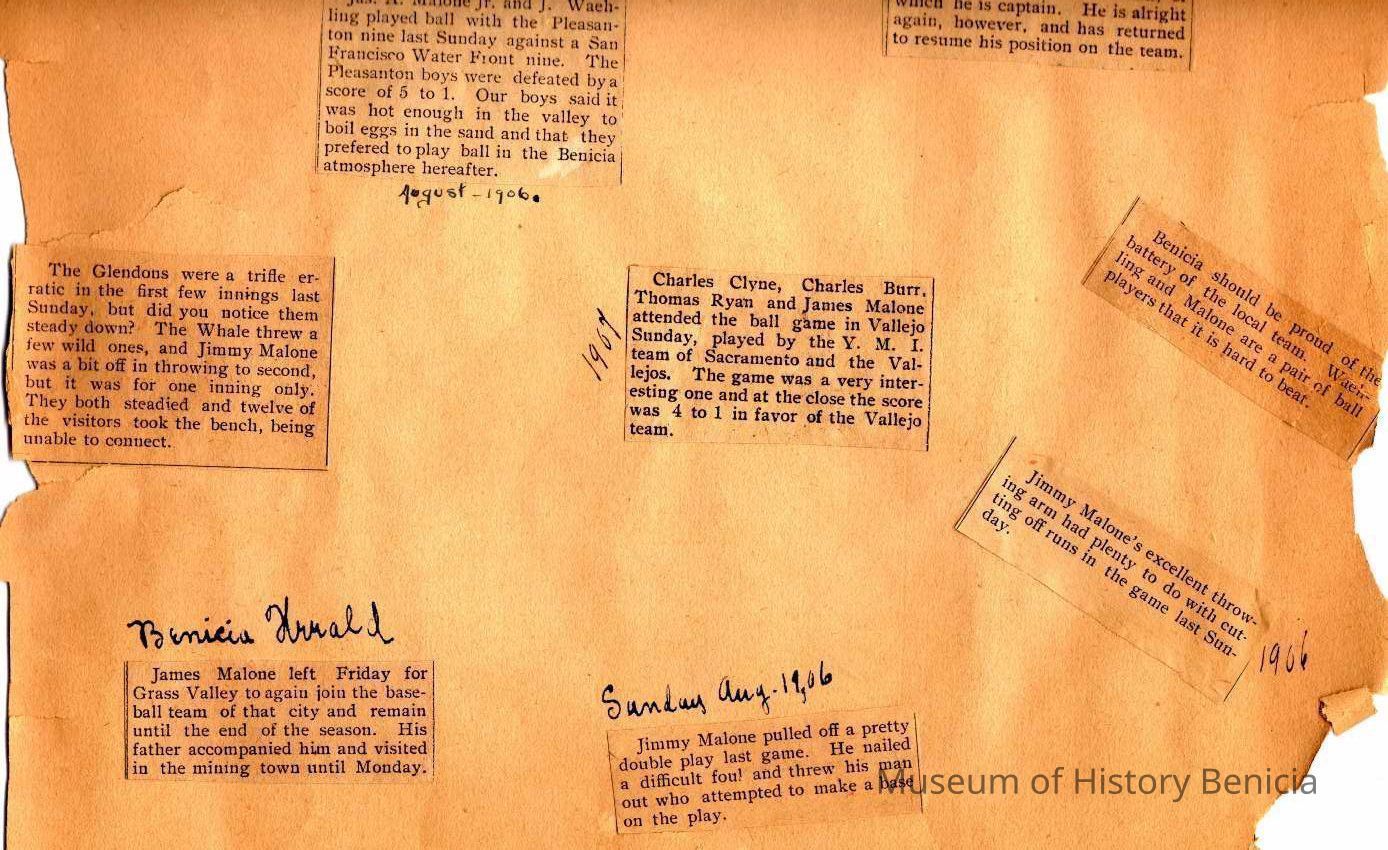 Jas. A. Malone Jr. and J. Waeh-
ling played ball with the Pleasan-
ton nine last Sunday against a San
Francisco Water Front nine. The
Pleasanton boys were defeated by a
score of 5 to 1. Our boys said it
was hot enough in the valley to
boil eggs in the sand and that they
prefered to play ball in the Benicia
atmosphere hereafter.
August - 1906.
which he is captain. He is alright
again, however, and has returned
to resume his position on the team.
The Glendons were a trifle er-
ratic in the first few innings last
Sunday, but did you notice them
steady down? The Whale threw a
few wild ones, and Jimmy Malone
was a bit off in throwing to second,
but it was for one inning only.
They both steadied and twelve of
the visitors took the bench, being
unable to connect.
1907
Charles Clyne, Charles Burr,
Thomas Ryan and James Malone
attended the ball game in Vallejo
Sunday, played by the Y. M. I.
team of Sacramento and the Val-
lejos. The game was a very inter-
esting one and at the close the score
was 4 to 1 in favor of the Vallejo
team.
Benicia should be proud of the
battery of the local team. Waeh-
ling and Malone are a pair of ball
players that it is hard to beat.
Jimmy Malone's excellent throw-
ing arm had plenty to do with cut-
ting off runs in the game last Sun-
day.
1906
Benicia Herald
James Malone left Friday for
Grass Valley to again join the base-
ball team of that city and remain
until the end of the season. His
father accompanied him and visited
in the mining town until Monday.
Sunday Aug. 19, 06
Jimmy Malone pulled off a pretty
double play last game. He nailed
a difficult foul and threw his man
out who attempted to make a base
on the play.
Museum of History Benicia